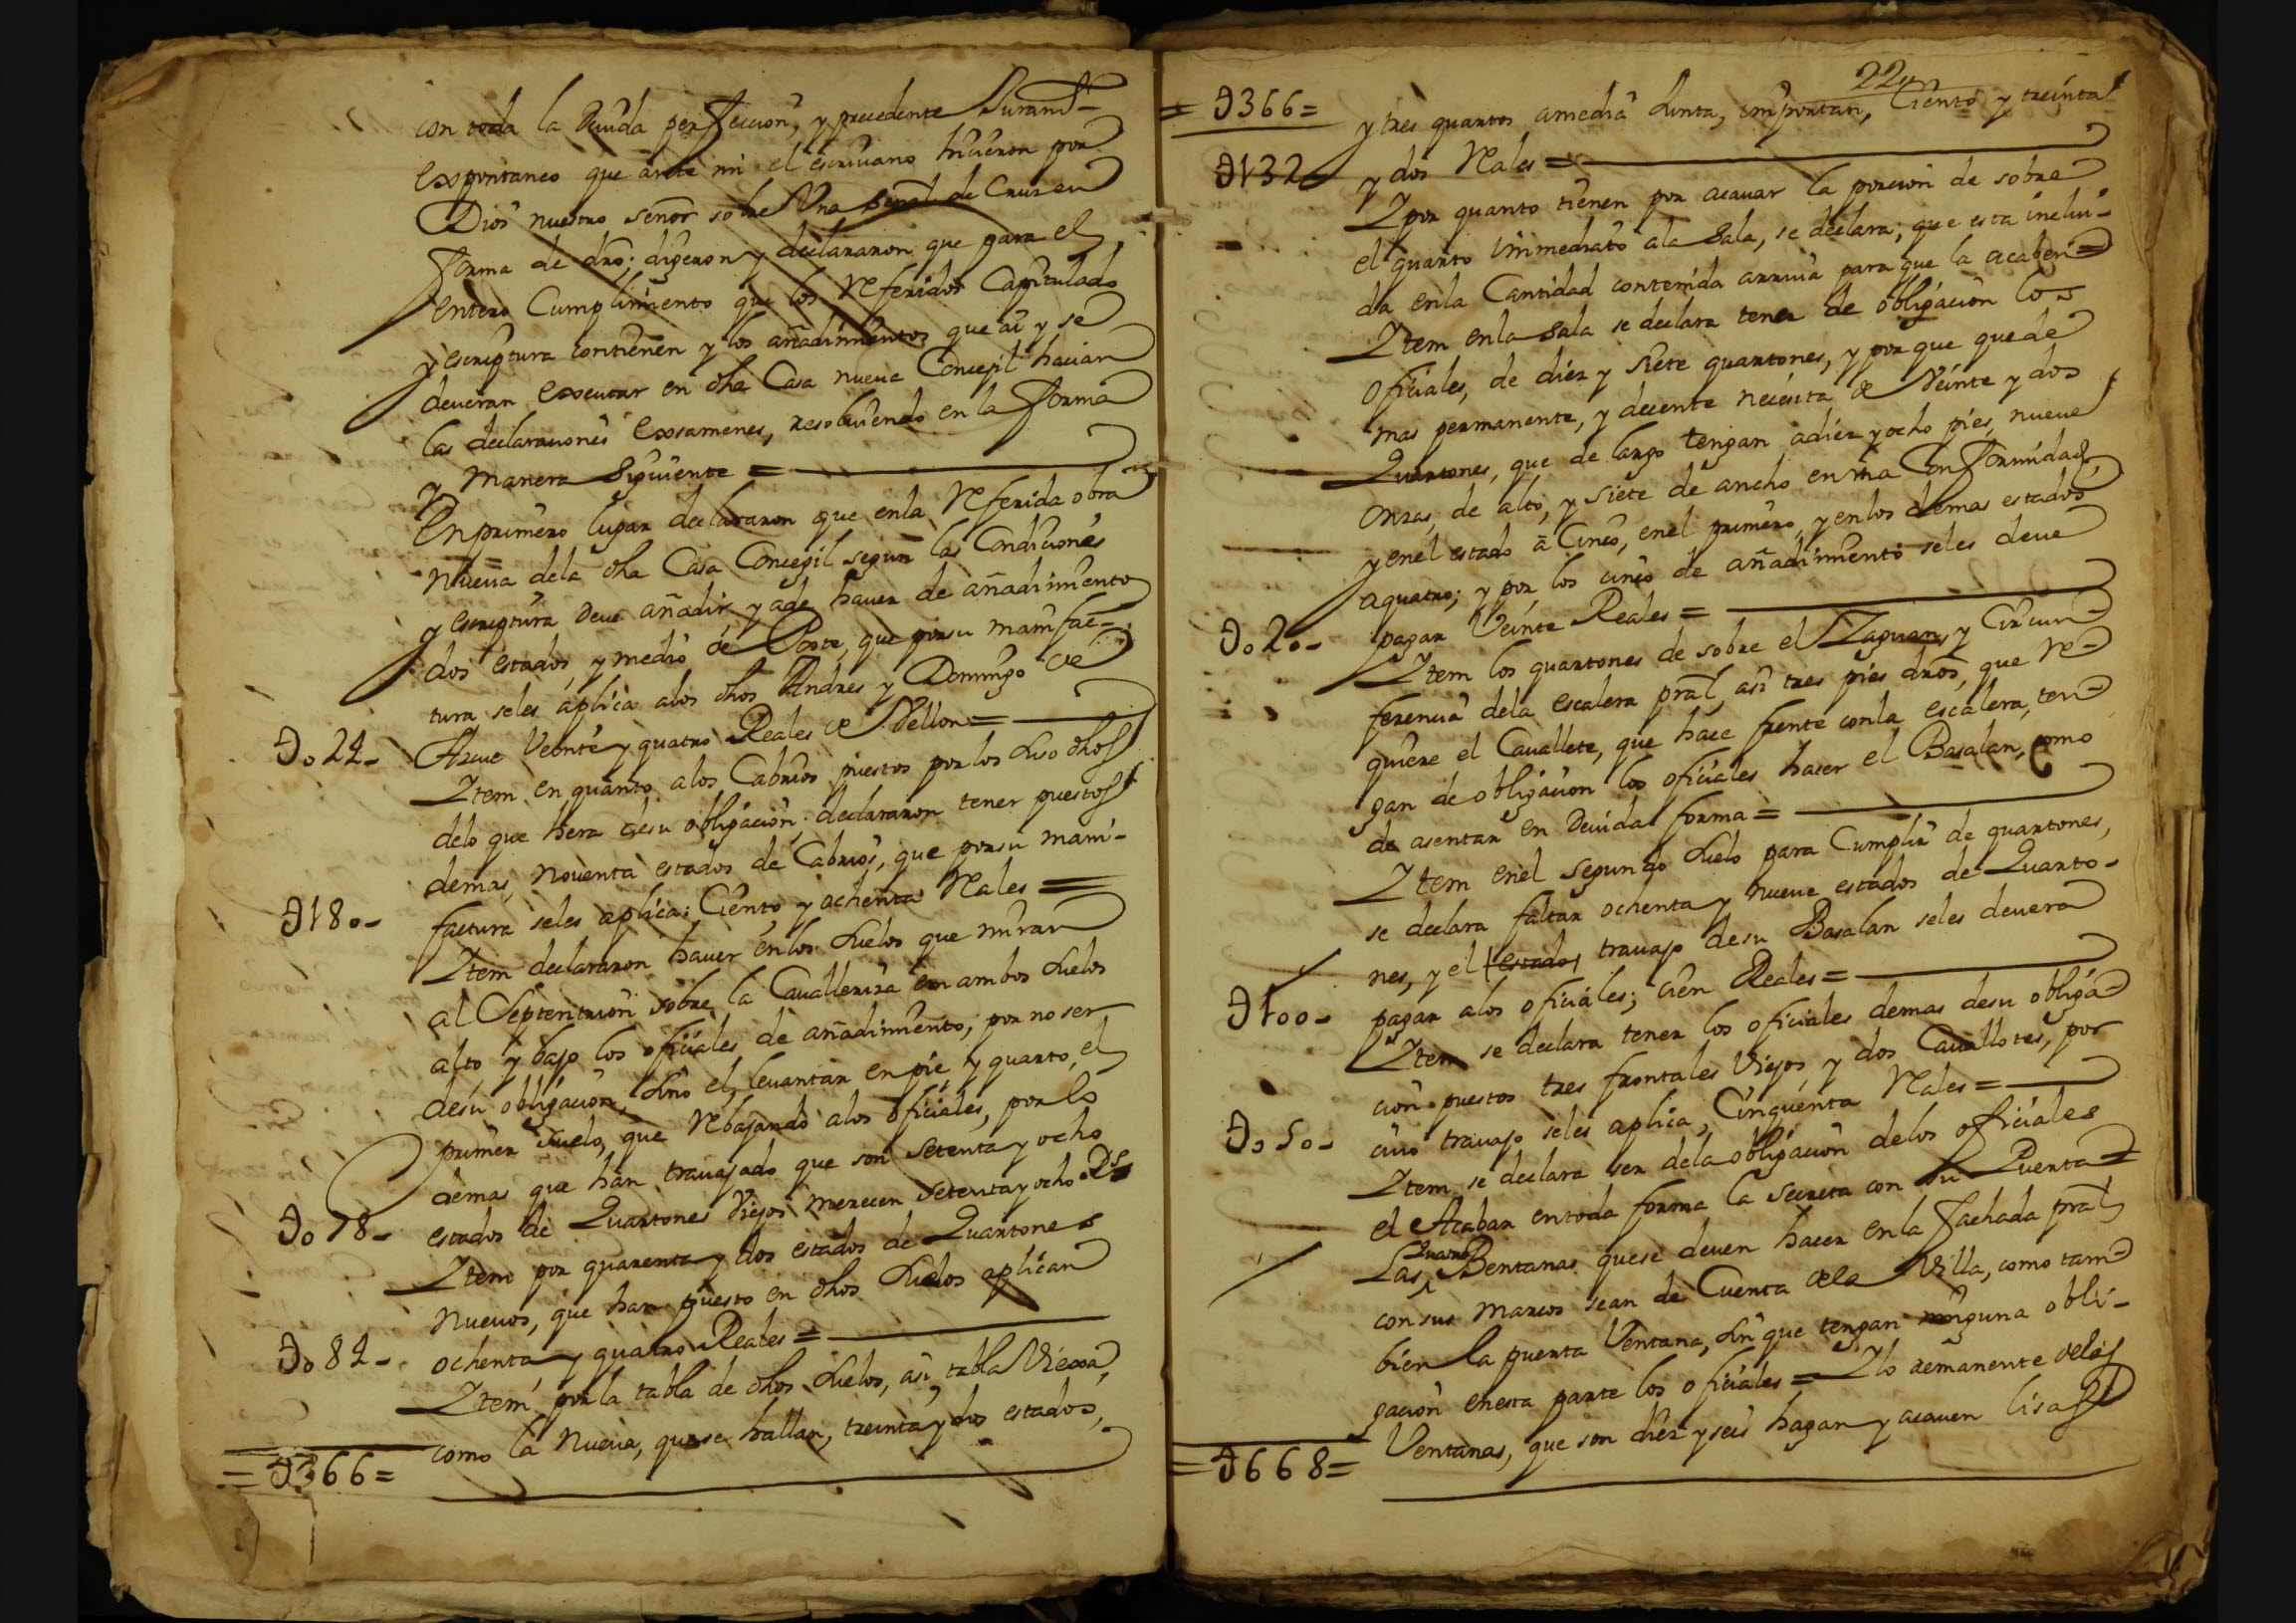 con toda la deuida perfeccion, y precedente Juramto
expontaneo que ante mi el escriuano hicieron por
Dios nuestro señor sobre Vna señal de Cruz en
forma de dro; digeron y declararon que para el
entero Cumplimiento que los Referidos Capitulado
y escriptura contienen y los añadimientos que ai y se
deueran executar en dha Casa nueua Concegil hacian
las declaraciones exsamenes, resolbiendo en la forma
y Manera Siguiente =
En primero lugar declararon que en la Referida obra
Nueua de la dha Casa Concegil segun las Condiciones
y escriptura deue añadir, y a de hauer de añadimiento
dos estados, y medio de Poste, que por su manifac-
tura seles aplica a los dhos Andres y Domingo de
Do24- Veinte y quatro Reales de Vellon =
Ztem en quanto a los Cabrios puestos por los suso dhos
delo que hera de su obligacion; declararon tener puestos
demas, nouenta estados de Cabrios, que por su mani-
D180- factura seles aplica; Ciento y ochenta Reales =
Ztem declararon hauer en los suelos que miran
al Septentrion sobre la Caualleriza en ambos suelos
alto, y bajo los oficiales de añadimiento, por no ser
desu obligacion, sino el leuantar en pie y quarto, el
primer suelo, que Rebajando a los oficiales, por lo
demas que han trauajado que son setenta y ocho
Do78- estados de Quartones Viejos merecen setenta y ocho Rs
Ztem por quarenta y dos estados de Quartones
Nueuos, que han puesto en dhos suelos aplican
Do84- ochenta, y quatro Reales =
Ztem por la tabla de dhos suelos, asi tabla Viexa,
como la Nueua, que se hallan, treinta y dos estados,
= D366 =
22
= D366 = y tres quartos amedia Junta, importan, Ciento y treinta
D132 y dos Reales =
Z por quanto tienen por acauar la porcion de sobre
el quarto inmediato ala Sala, se declara; que esta inclui-
da en la Cantidad contenida arriua para que la acaben =
Ztem en la Sala se declara tener de obligacion los
oficiales, de diez y siete quartones, y por que quede
mas permanente, y decente necesita de Veinte y dos
Quartones, que de largo tengan a diez y ocho pies, nueue
onzas, de alto, y siete de ancho en vna Conformidad,
y en el estado a Cinco, en el primero, y en los demas estados
aquatro; y por los cinco de añadimiento seles deue
Do20- pagar Veinte Reales =
Ztem los quartones de sobre el Zaguan, y Circun-
ferencia dela escalera pral, asi tres pies dros, que Re-
quiere el Cauallete, que hace frente con la escalera, ten-
gan de obligacion los oficiales hacer el Basalan, como
de asentar en deuida forma =
Ztem en el segundo suelo para Cumplir de quartones,
se declara faltar ochenta y nueue estados de Quarto-
nes, y el estados trauajo desu Basalan seles deuera
D100- pagar alos oficiales; cien Reales =
Ztem se declara tener los oficiales demas desu obliga-
cion puestos tres frontales Viejos, y dos Cauallotes, por
Do50- cuio trauajo seles aplica, Cinquenta Reales =
Ztem se declara ser dela obligacion delos oficiales
el Acabar en toda forma la secreta con su Puerta =
Las quatro Bentanas que se deuen hacer en la fachada pral
con sus marcos sean de Cuenta dela Villa, como tam-
bien la puerta Ventana, sin que tengan ninguna obli-
gacion en esta parte los oficiales = Z lo remanente delas
Ventanas, que son diez y seis hagan y acauen lisas
= D668 =